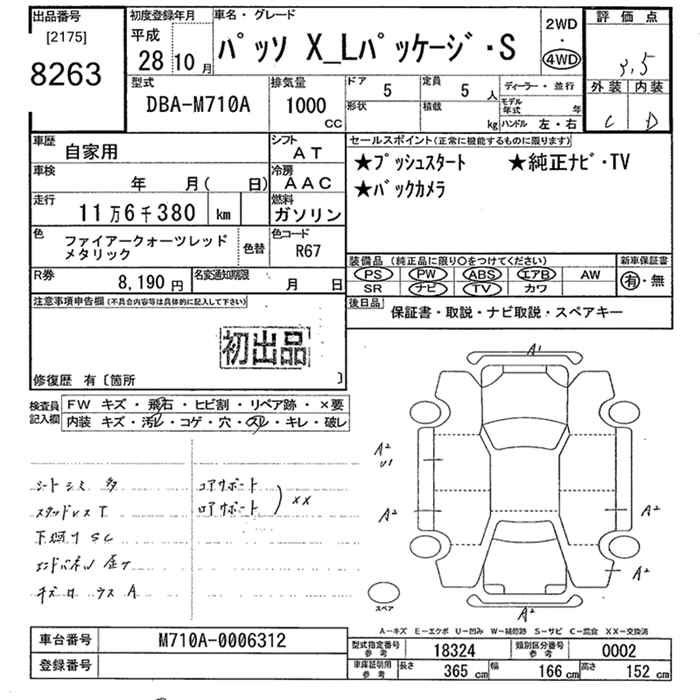 出品番号
[2175]
8263
初度登録年月
平成
28 10 月
車名・グレード
パッソ X_Lパッケージ・S
2WD
・
4WD
評価点
3.5
外装 内装
C D
型式
DBA-M710A
排気量
1000
CC
ドア
5
定員
5 人
形状
積載
kg
ディーラー・並行
モデル年式 年
ハンドル 左・右
車歴
自家用
シフト
AT
セールスポイント(正常に機能するものに限ります)
★プッシュスタート ★純正ナビ・TV
★バックカメラ
車検
年 月( 日)
冷房
AAC
走行
11万6千380 km
燃料
ガソリン
色
ファイアークォーツレッド
メタリック
色替
色コード
R67
装備品 (純正品に限り〇をつけてください)
PS PW ABS エアB AW
SR ナビ TV カワ
新車保証書
有・無
R券
8,190 円
名変通知期限
月 日
後日品
保証書・取説・ナビ取説・スペアキー
注意事項申告欄(不具合内容等は具体的に記入して下さい)
初出品
修復歴 有〔箇所 〕
検査員記入欄
FW キズ・飛石・ヒビ割・リペア跡・×要
内装 キズ・汚レ・コゲ・穴・スレ・キレ・破レ
シートシミ 多
スタッドレス T
下廻り SC
コアサポート
ロアサポート
XX
A1
A2
U1
A2
A2
A2
A2
スペア
A-キズ E-エクボ U-凹み W-補修跡 S-サビ C-腐食 XX-交換済
車台番号
M710A-0006312
登録番号
型式指定番号 参考
18324
類別区分番号 参考
0002
車庫証明用 参考
長さ 365 cm 幅 166 cm 高さ 152 cm